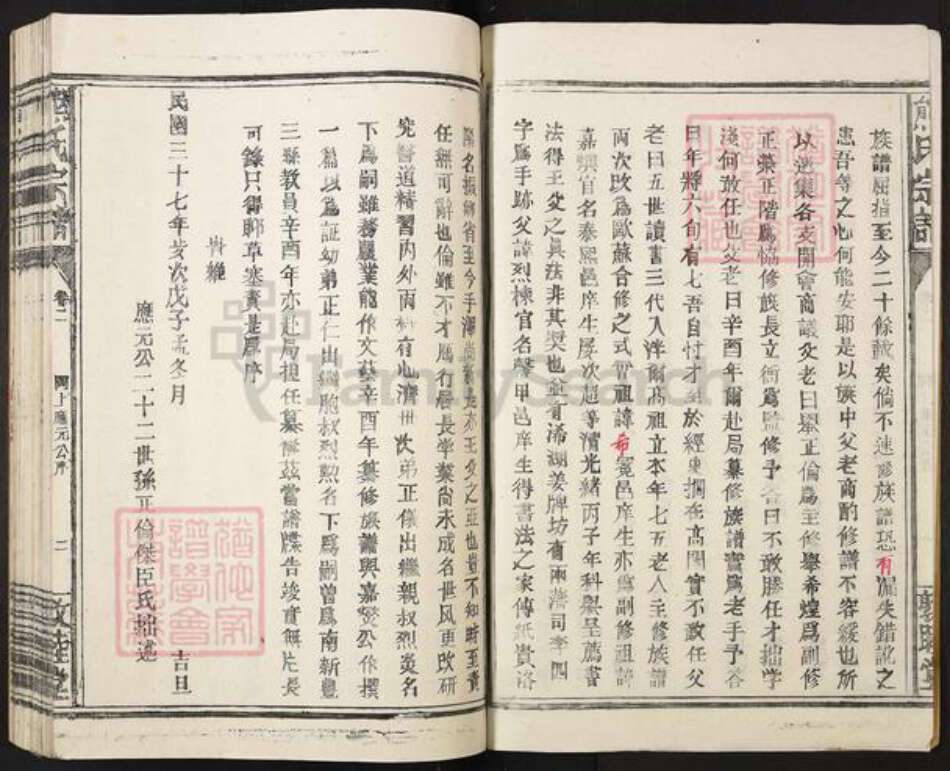 族譜屈指至今二十餘載矣倘不速修族譜恐有漏失錯訛之
患吾等之心何能安耶是以族中父老商酌修譜不容緩也所
以邀集各支開會商議父老曰舉正倫為主修舉希煌為副修
正榮正階為協修族長立衡為監修予答曰不敢勝任才拙學
淺何敢任也父老曰辛酉年爾赴局纂修族譜實為老手予答
曰年將六旬有七吾自忖才至於經史擱在高閣實不敢任父
老曰五世讀書三代入泮爾高祖立本年七五老人主修族譜
兩次改為歐蘇合修之式曾祖諱希冕邑庠生亦為副修祖諱
嘉熤官名泰熙邑庠生屢次超等清光緒丙子年科舉呈薦書
法得王父之真法非其獎也並有浠湖姜牌坊有兩藩司李四
字為手跡父諱烈棟官名聲甲邑庠生得書法之家傳紙貴洛
陽名振鄉省至今手澤尚新是亦王父之亞也豈不知時至責
任無可辭也倫雖不才厲行居長學業尚未成名世風更改研
究醫道精習內外兩科有心濟世次弟正儀出繼親叔烈炎名
下為嗣雖務農業能作文藝辛酉年纂修族譜與嘉熨公作撰
一篇以為証幼弟正仁出繼胞叔烈勲名下為嗣曾為南新豐
三縣教員辛酉年亦赴局担任纂修茲當譜牒告竣實無片長
可錄只得聊草塞責是為序
皆繼
民國三十七年歲次戊子孟冬月
吉旦
應元公二十二世孫正倫傑臣氏拙述
熊氏宗譜
卷二
應元公序
二
敦睦堂
FamilySearch